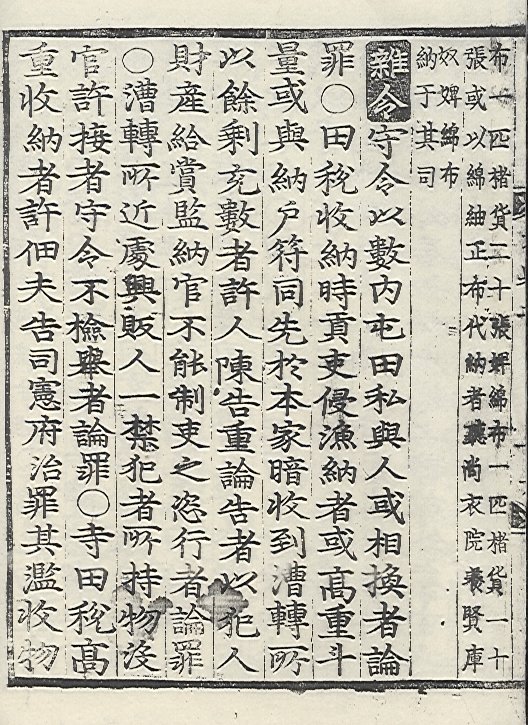 布一匹楮貨二十張婢綿布一匹楮貨一十
張或以綿紬正布代納者聽尚衣院養賢庫
奴婢綿布
納于其司
雜令守令以數內屯田私與人或相換者論
罪〇田稅收納時貢吏侵漁納者或高重斗
量或與納戶符同先於本家暗收到漕轉所
以餘剩充數者許人陳告重論告者以犯人
財產給賞監納官不能制吏之恣行者論罪
〇漕轉所近處興販人一禁犯者所持物沒
官許接者守令不檢擧者論罪〇寺田稅高
重收納者許佃夫告司憲府治罪其濫收物